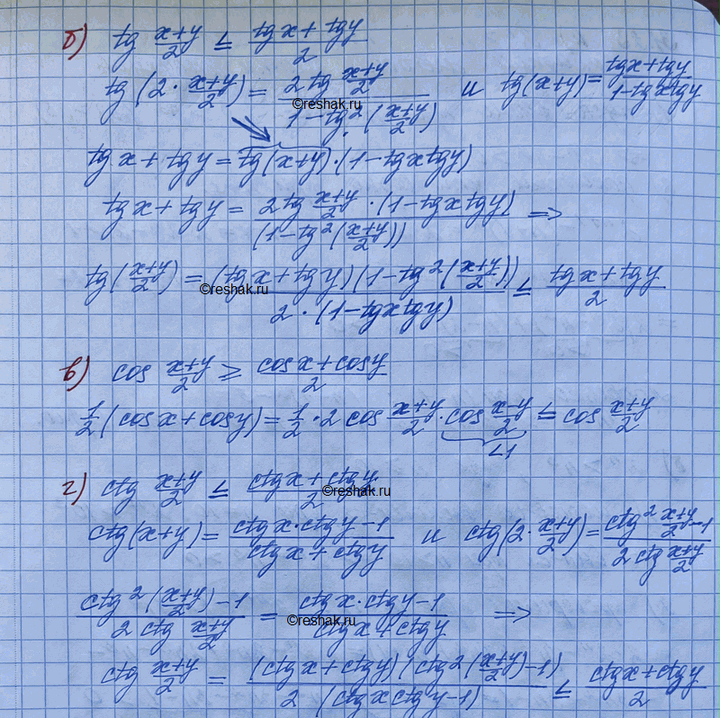 б) tg (x+y)/2 ≤ (tgx + tgy)/2
tg(2·(x+y)/2) = (2tg (x+y)/2)/(1-tg²((x+y)/2)) и tg(x+y) = (tgx+tgy)/(1-tgxtgy)
©reshak.ru
tgx + tgy = tg(x+y)·(1-tgxtgy)
tgx + tgy = (2tg (x+y)/2 · (1-tgxtgy))/(1-tg²((x+y)/2)) =>
tg((x+y)/2) = ((tgx+tgy)(1-tg²((x+y)/2)))/(2·(1-tgxtgy)) ≤ (tgx+tgy)/2
©reshak.ru
в) cos (x+y)/2 ≥ (cosx+cosy)/2
1/2(cosx+cosy) = 1/2·2cos (x+y)/2 · cos (x-y)/2 ≤ cos (x+y)/2
<1
г) ctg (x+y)/2 ≤ (ctgx+ctgy)/2
©reshak.ru
ctg(x+y) = (ctgx·ctgy-1)/(ctgx+ctgy) и ctg(2·(x+y)/2) = (ctg² (x+y)/2 -1)/(2ctg (x+y)/2)
(ctg²((x+y)/2)-1)/(2ctg (x+y)/2) = (ctgx·ctgy-1)/(ctgx+ctgy) =>
©reshak.ru
ctg (x+y)/2 = ((ctgx+ctgy)(ctg²((x+y)/2)-1))/(2(ctgxctgy-1)) ≤ (ctgx+ctgy)/2